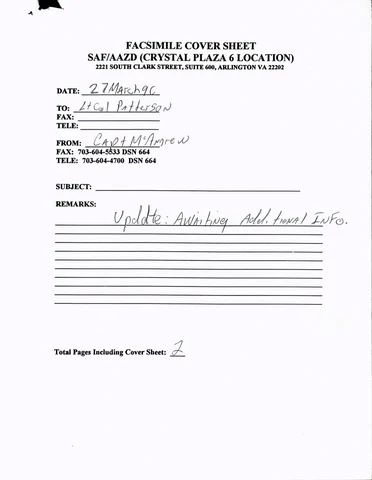 FACSIMILE COVER SHEET
SAF/AAZD (CRYSTAL PLAZA 6 LOCATION)
2221 SOUTH CLARK STREET, SUITE 600, ARLINGTON VA 22202
DATE: 27 March 96
TO: Lt Col Patterson
FAX:
TELE:
FROM: Capt McAndrew
FAX: 703-604-5533 DSN 664
TELE: 703-604-4700 DSN 664
SUBJECT:
REMARKS:
Update: Awaiting Addl. tional Info.
Total Pages Including Cover Sheet: 2